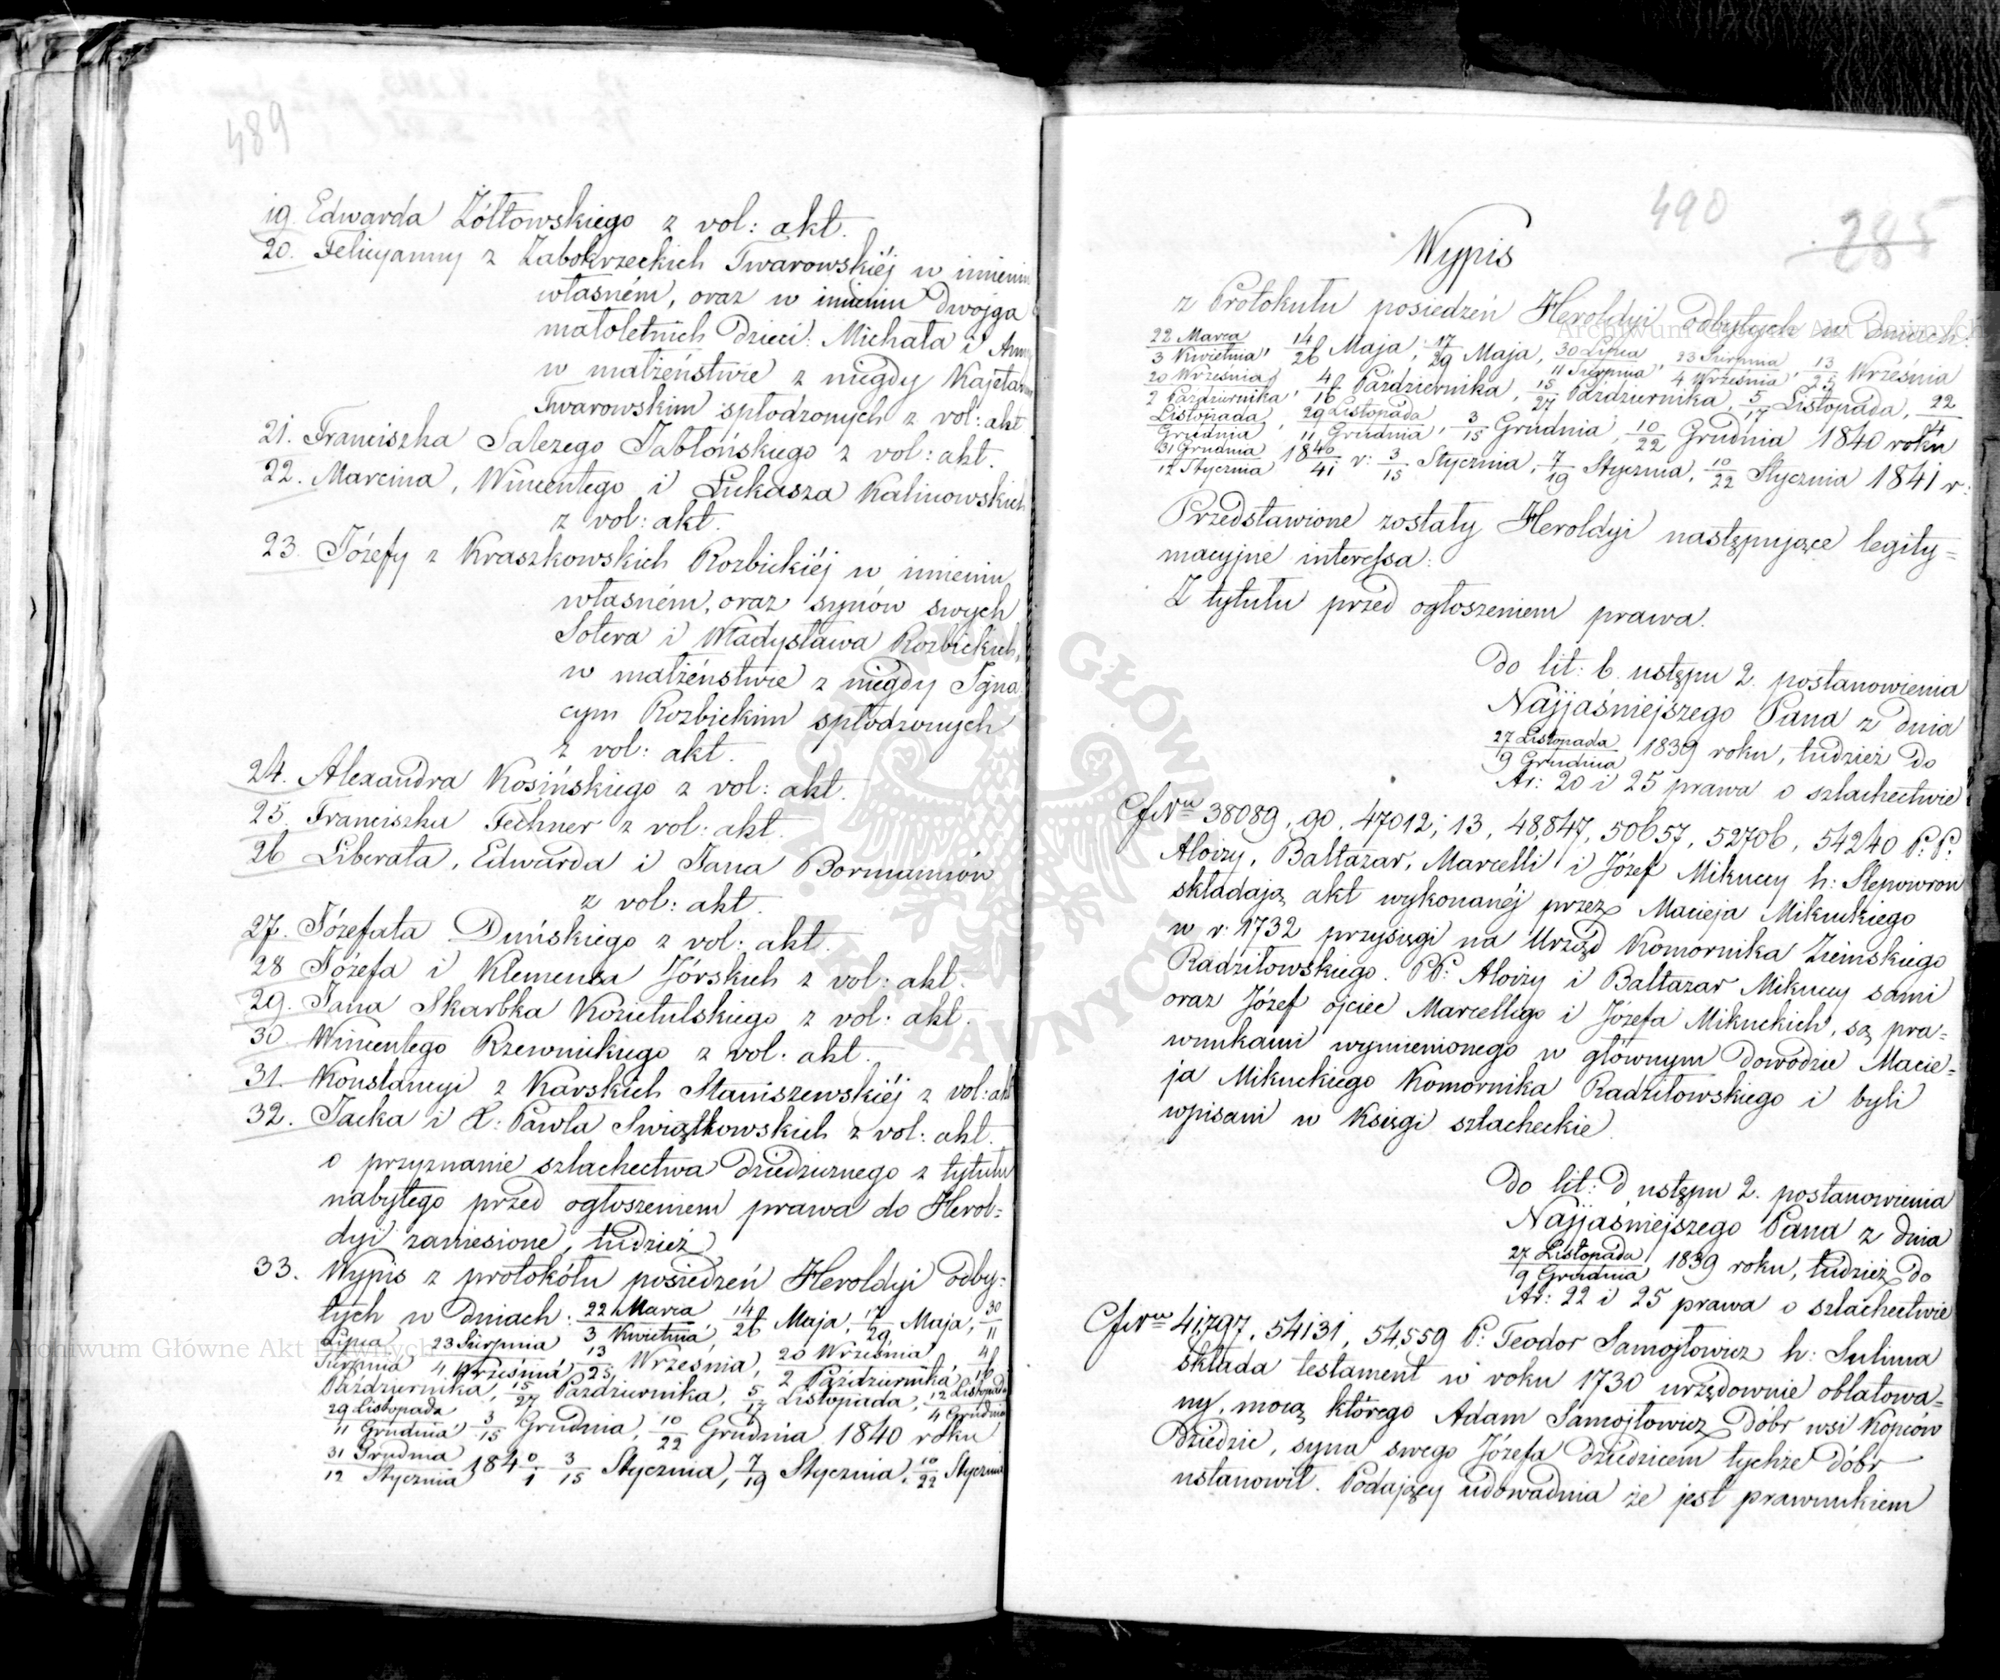 489
19. Edwarda Żółtowskiego z vol: akt.
20. Felicyanny z Zabokrzeckich Twarowskiéj w imieniu
własném, oraz w imieniu dwojga
małoletnich dzieci: Michała i Anny
w małżeństwie z niegdy Kajetanem
Twarowskim spłodzonych z vol: akt
21. Franciszka Salezego Jabłońskiego z vol: akt.
22. Marcina, Wincentego i Łukasza Kalinowskich
z vol: akt.
23. Józefy z Kraszkowskich Rozbickiéj w imieniu
własném, oraz synów swych
Sotera i Władysława Rozbickich,
w małżeństwie z niegdy Igna
cym Rozbickim spłodzonych
z vol: akt.
24. Alexandra Kosińskiego z vol: akt.
25. Franciszka Fechner z vol: akt.
26 Liberata, Edwarda i Jana Bormanów
z vol: akt.
27. Józefata Dunskiego z vol: akt.
28 Józefa i Klemensa Górskich z vol: akt.
29. Jana Skarbka Kozietulskiego z vol: akt.
30. Wincentego Rzewnickiego z vol: akt.
31. Konstancyi z Karskich Staniszewskiéj z vol: akt
32. Jacka i X: Pawła Swiątkowskich z vol: akt.
o przyznanie szlachectwa dziedzicznego z tytułu
nabytego przed ogłoszeniem prawa do Herol=
dyi zaniesione, tudzież
33. Wypis z protokółu posiedzeń Heroldyi odby=
tych w dniach: 22 Marca/3 Kwietnia, 14/26 Maja, 17/29 Maja, 30/11
Lipca/Sierpnia 23 Sierpnia/4 Września 13/25 Września, 20 Września/2 Października 4/16
Października, 15/27 Października, 5/17 Listopada, 12 Listopada/4 Grudnia
29 Listopada/11 Grudnia, 3/15 Grudnia, 10/22 Grudnia 1840 roku
31 Grudnia/12 Stycznia 1840/1 3/15 Stycznia, 7/19 Stycznia, 10/22 Stycznia
490
285
Wypis
z Protokułu posiedzeń Heroldyi odbytych w dniach:
22 Marca/3 Kwietnia, 14/26 Maja, 17/29 Maja, 30 Lipca/11 Sierpnia, 23 Sierpnia/4 Września, 13/25 Września
20 Września/2 Października, 4/16 Października, 15/27 Października, 5/17 Listopada, 22/4
Listopada/Grudnia, 29 Listopada/11 Grudnia, 3/15 Grudnia, 10/22 Grudnia 1840 roku
31 Grudnia/12 Stycznia 1840/41 r: 3/15 Stycznia, 7/19 Stycznia, 10/22 Stycznia 1841 r:
Przedstawione zostały Heroldyi następujące legity=
macyjne interessa:
Z tytułu przed ogłoszeniem prawa.
Do lit: b. ustępu 2. postanowienia
Najjaśniejszego Pana z dnia
27 Listopada/9 Grudnia 1839 roku, tudzież do
Ar: 20 i 25 prawa o szlachectwie
38089, 90, 47012, 13, 48,847, 50657, 52706, 54240 P: P:
Aloizy, Baltazar, Marcelli i Józef Mikuccy h: Slepowron
składają akt wykonanéj przez Macieja Mikuckiego
w r: 1732 przysięgi na Urząd Komornika Ziemskiego
Radziłowskiego. PP: Aloizy i Baltazar Mikuccy sami
oraz Józef ojciec Marcellego i Józefa Mikuckich, są pra=
wnukami wymienionego w głównym dowodzie Macie=
ja Mikuckiego Komornika Radziłowskiego i byli
wpisani w Księgi szlacheckie
Do lit: d ustępu 2. postanowienia
Najjaśniejszego Pana z dnia
27 Listopada/9 Grudnia 1839 roku, tudzież do
Ar: 22 i 25 prawa o szlachectwie
41,797, 54131, 54,559 P: Teodor Samojłowicz h: Sulima
składa testament w roku 1730 urzędownie oblatowa=
ny, mocą którego Adam Samojłowicz dóbr wsi Kopciów
dziedzic, syna swego Józefa dziedzicem tychże dóbr
ustanowił. Podający udowadnia że jest prawnukiem
Archiwum Główne Akt Dawnych
Archiwum Główne Akt Dawnych